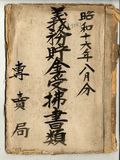 昭和十六年八月分
義務貯金受拂書類
專賣局